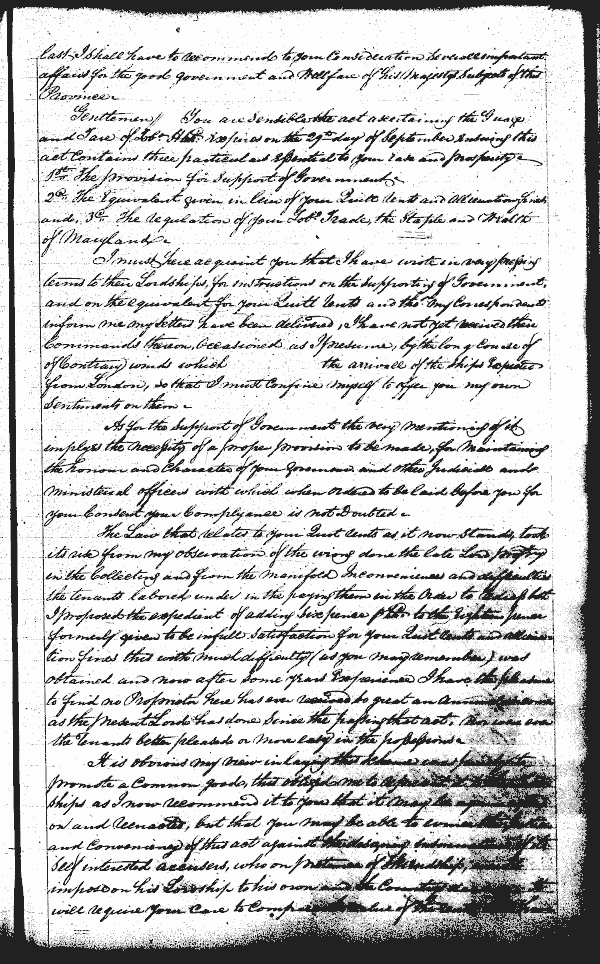 last I shall have to recommend to your Consideration Severall important
affairs for the good government and Wellfare of his Majestys Subjects of this
Province.
Gentlemen/ You are Sensible the act ascertaining the Guage
and Tare of Tobo Hhds Expires on the 29th day of September ensuing this
act Contains three particulars Essential to your Ease and prosperity
1st The provision for Support of Government
2d The Equivalent given in lieu of your Quitt Rents and Alienation fines
and, 3d The regulation of your Tobo Trade, the Staple and Wealth
of Maryland.
I must here acquaint you that I have wrote in very pressing
terms to their Lordships, for instructions on the Supporting of Government,
and on the equivalent for your Quitt rents and tho' my Correspondents
inform me my letters have been delivered, I have not yet received their
Commands thereon, occasioned as I presume, by the long Course of
of Contrary winds which the arrivall of the Ships Expected
from London, so that I must Confine myself to offer you my own
Sentiments on them.
As for the Support of Government the very mentioning of it
implyes the necessity of a proper provision to be made, for maintaining
the honour and Character of your Governour and other Judicial and
ministerial officers with which when ordered to be laid before you for
your Consent your Complyance is not Doubted.
The Law that relates to your Quit rents as it now Stands, took
its rise from my observation of the wrong done the late Lord prop'ry
in the Collecting and from the manifold Inconveniences and difficulties
the tenants laboured under in the paying them in the Order to redress both
I proposed the expedient of adding Sixpence to the Eighteen pence
formerly given to be in full Satisfaction for your Quit rents and aliena-
tion fines this with much difficulty (as you may remember) was
obtained and now after some years Experience I have the pleasure
to find no Proprietor here has ever received so great an Annual
as the present Lord has done Since the passing that act. Nor were ever
the tenants better pleased or more easy in the possessions.
It is obvious my view in laying this Scheme was
promote a Common good, this obliged me to represent it
ships as I now recommend it to you that it may be
on and reenacted, but that you may be able to
and Conveniency of this act against the designing
Self interested accusers, who on pretence of friendship,
impose on his Lordship to his own and the Country
will require your Care to the value of